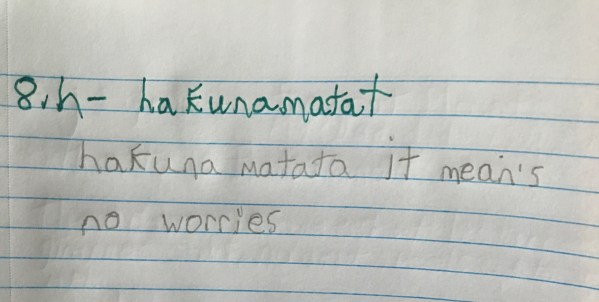 8.h- hakunamatat
hakuna matata it mean's
no worries